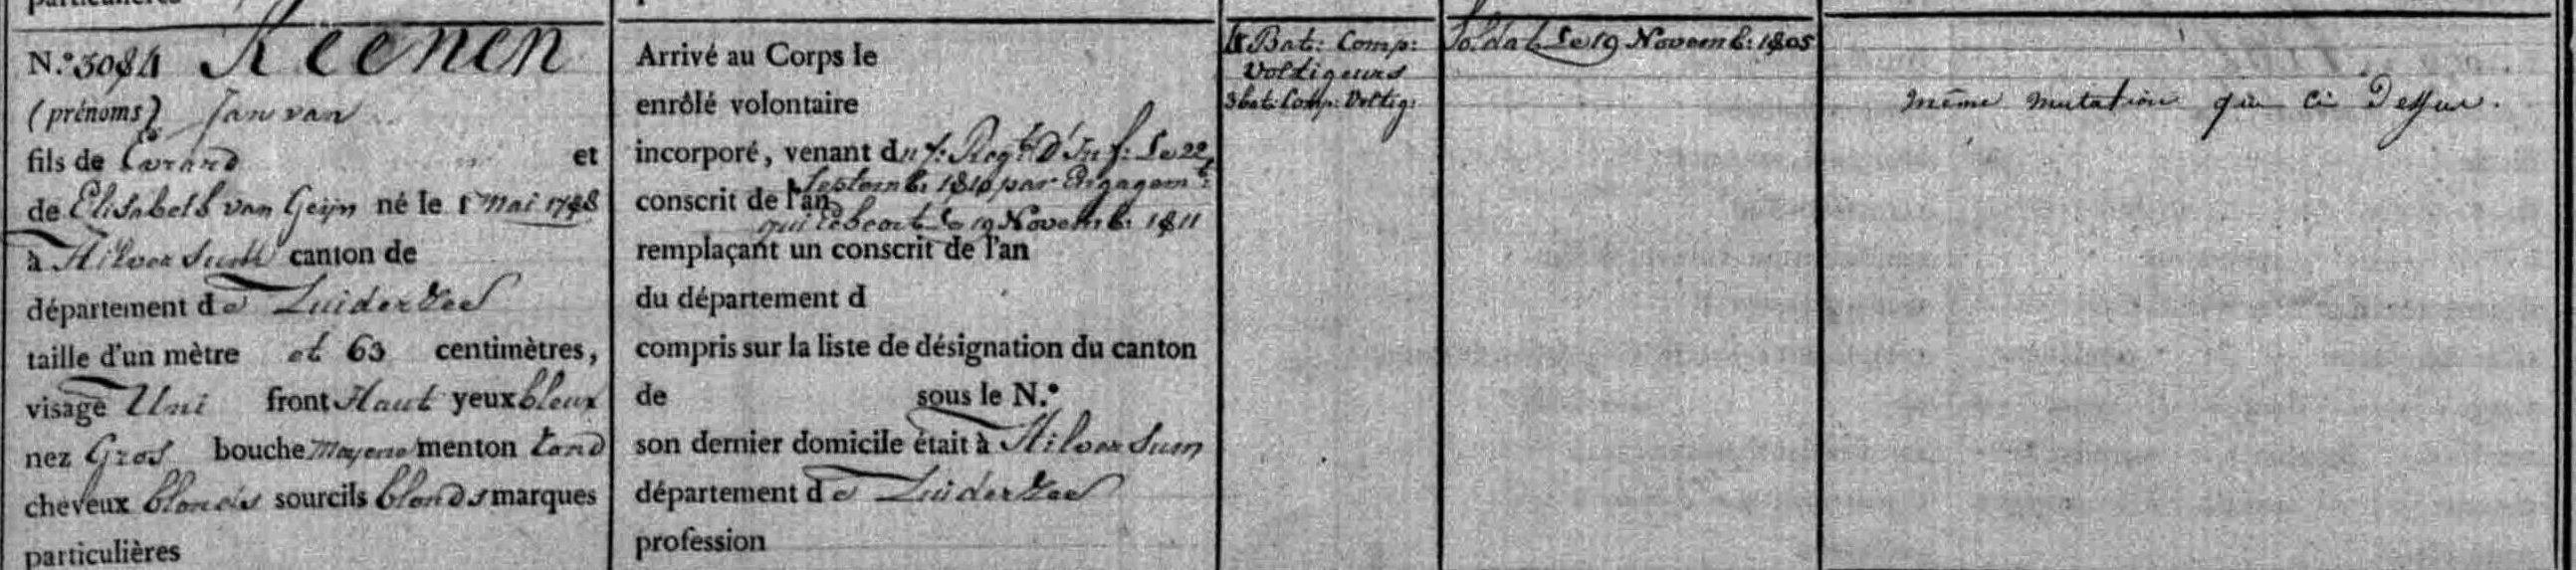 particulières
N.º 3084 Keenen
(prénoms) Jan van
fils de Evrard et
de Elisabeth van Geijn né le 1 Mai 1788
à Hilversum canton de
département de Zuiderzee
taille d'un mètre et 63 centimètres,
visage Uni front Haut yeux bleux
nez Gros bouche moyene menton rond
cheveux blonds sourcils blonds marques
particulières
Arrivé au Corps le
enrôlé volontaire
incorporé, venant du 7.e Regt D'Inf: Le 22
Septemb: 1810 par Engagemt:
conscrit de l'an
qui Echeoit Le 19 Novemb: 1811
remplaçant un conscrit de l'an
du département d
compris sur la liste de désignation du canton
de sous le N.º
son dernier domicile était à Hilversum
département de Zuiderzee
profession
Bat: Comp:
Voltigeurs
3 bat: Comp: Voltig:
Soldat Le 19 Novemb: 1805
même mutation que ci Dessus.